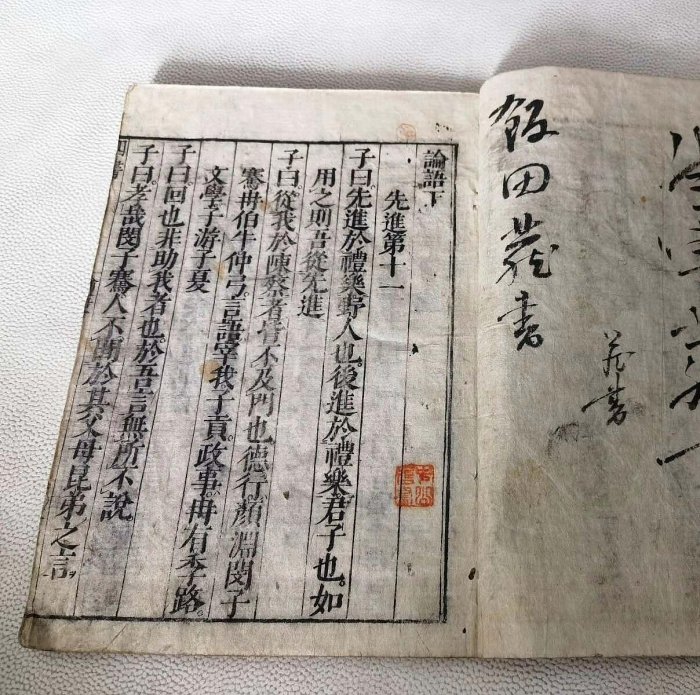 飯田蔵書
蔵書
論語下
先進第十一
子曰。先進於禮樂野人也。後進於禮樂君子也。如
用之則吾從先進
子曰。從我於陳蔡者皆不及門也德行。顏淵閔子
騫冉伯牛仲弓。言語宰我子貢。政事。冉有季路。
文學子游子夏
子曰。回也非助我者也。於吾言無所不說。
子曰。孝哉閔子騫人不間於其父母昆弟之言。